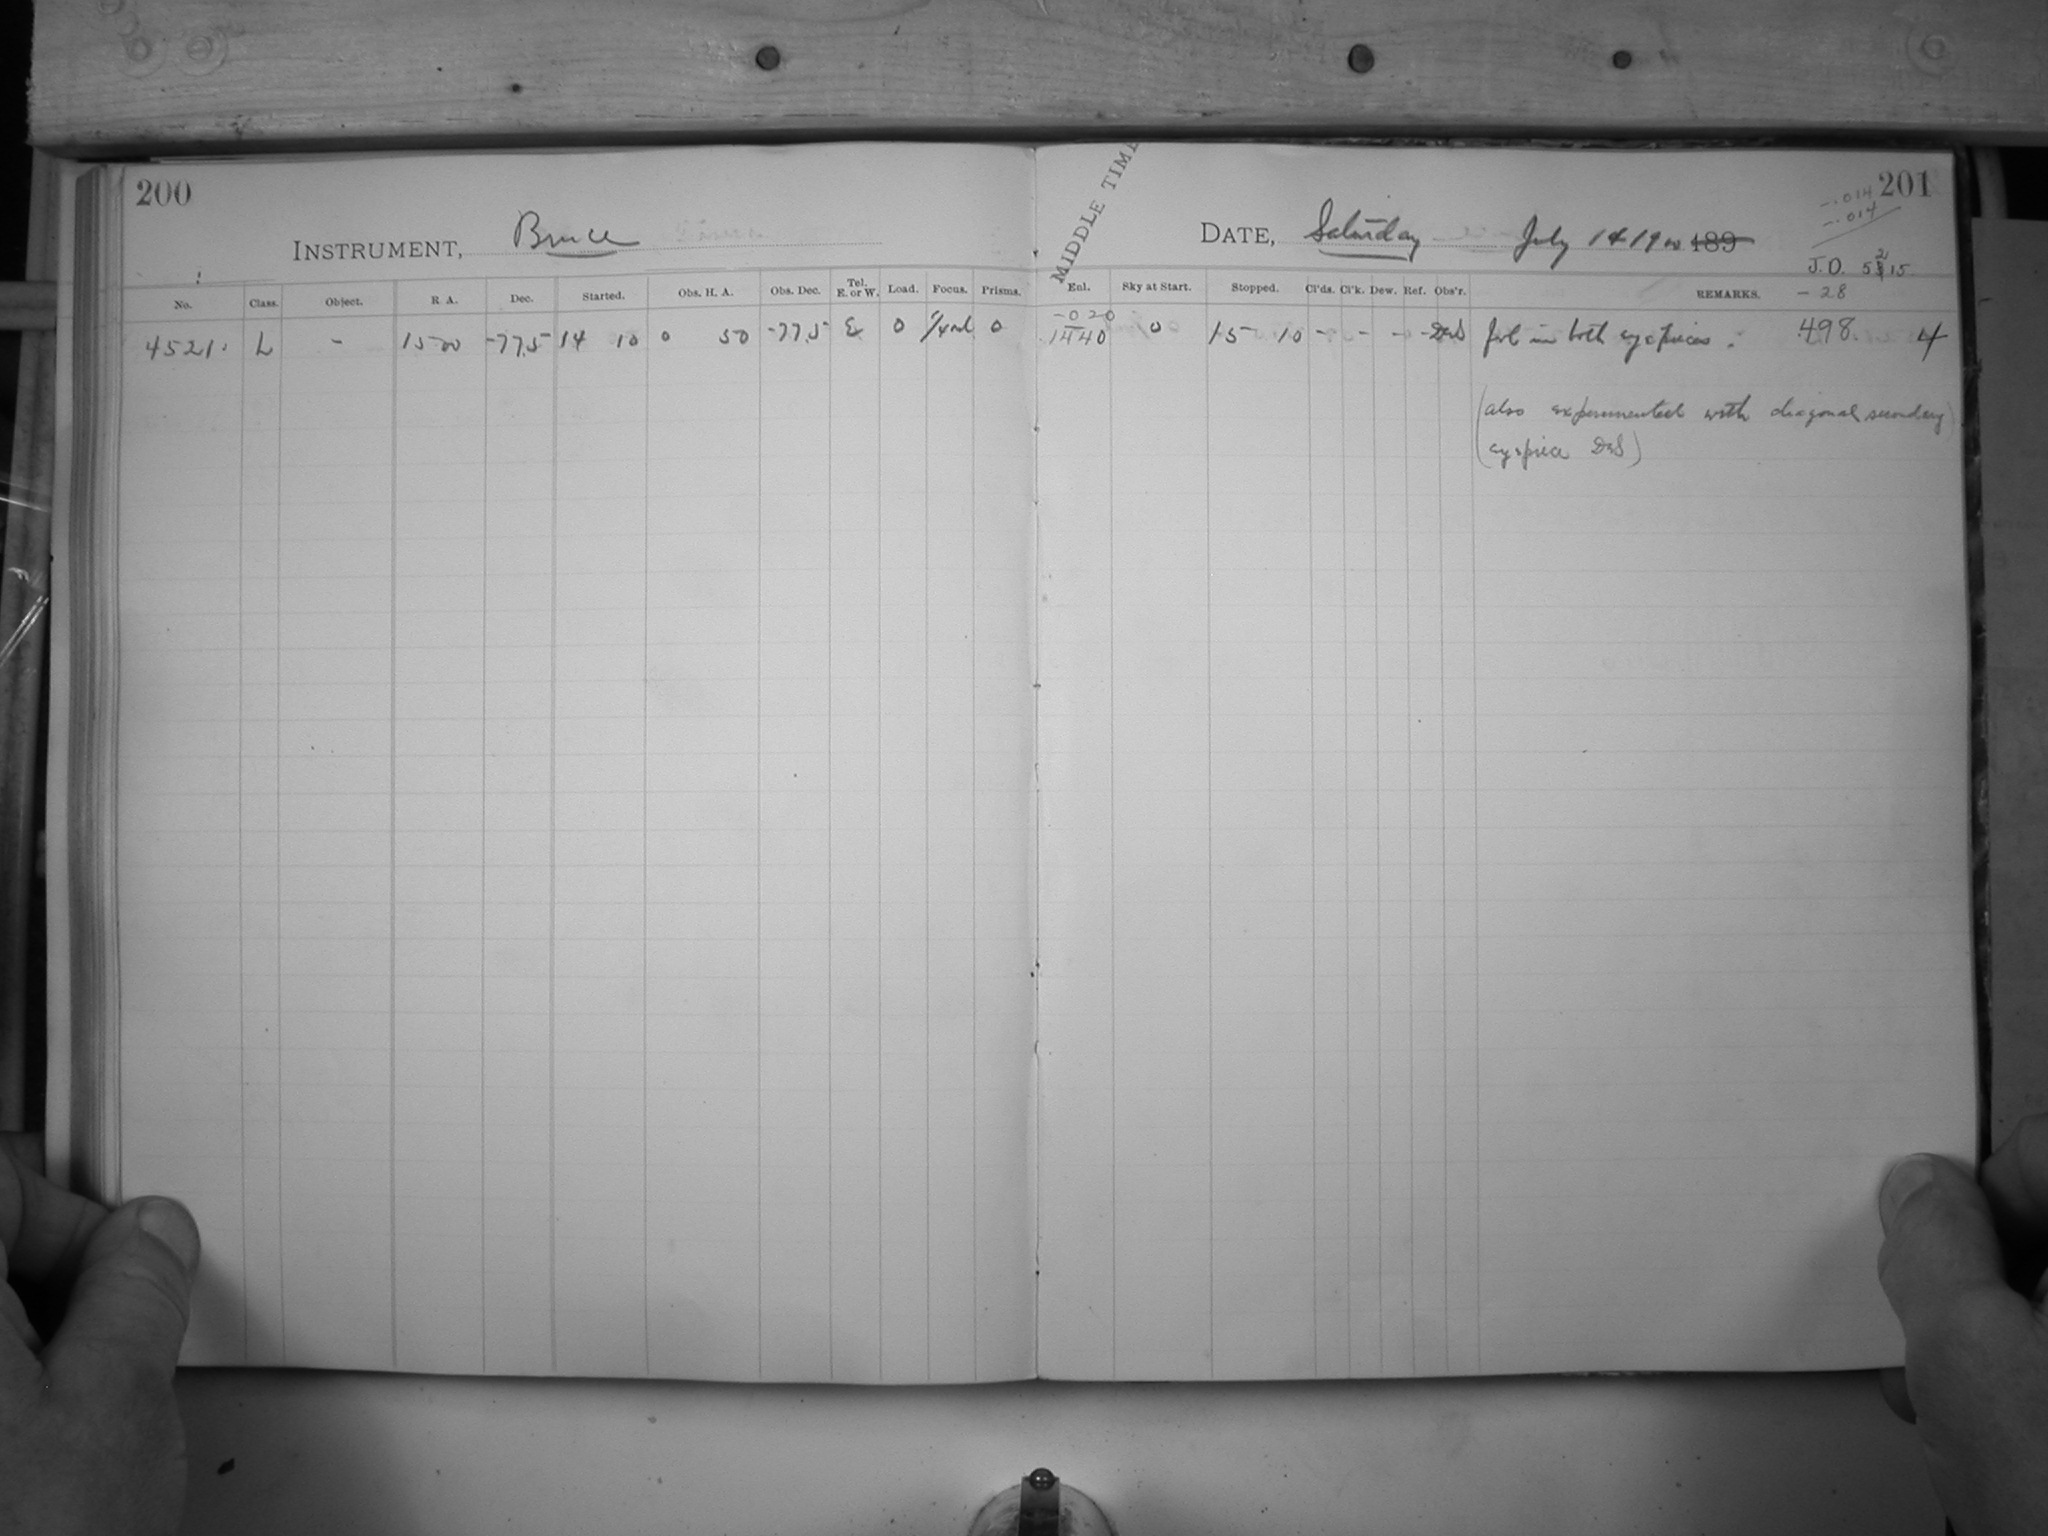 200
INSTRUMENT, Bruce
No. Class. Object. R. A. Dec. Started. Obs. H. A. Obs. Dec. Tel. E. or W. Load. Focus. Prisms.
4521. L - 15 00 -77.5 14 10 0 50 -77.5 E 0 0
MIDDLE TIME
201
-.014
-.014
DATE, Saturday July 14 1900 189
J.D. 5215
Enl. Sky at Start. Stopped. Cl'ds. Cl'k. Dew. Ref. Obs'r. REMARKS. - 28
-020
1440 0 15 10 - - - - DeS fol in both eyepieces. 498. 4
(also experimented with diagonal secondary
eyepiece DeS)